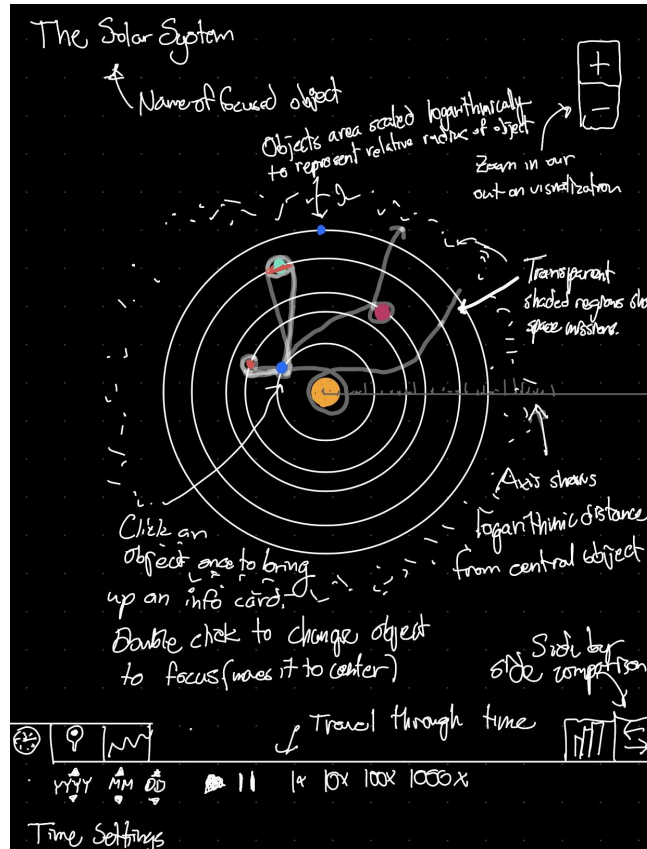 The Solar System
Name of focused object
Objects area scaled logarithmically
to represent relative radius of object
+
-
Zoom in our
out on visualization
Transparent
shaded regions sho
space missions.
Axis shows
logarithmic distance
from central object
Click an
object once to bring
up an info card.
Double click to change object
to focus (moves it to center)
Side by
side comparison
Travel through time
YYYY MM DD
1x 10x 100x 1000x
Time Settings